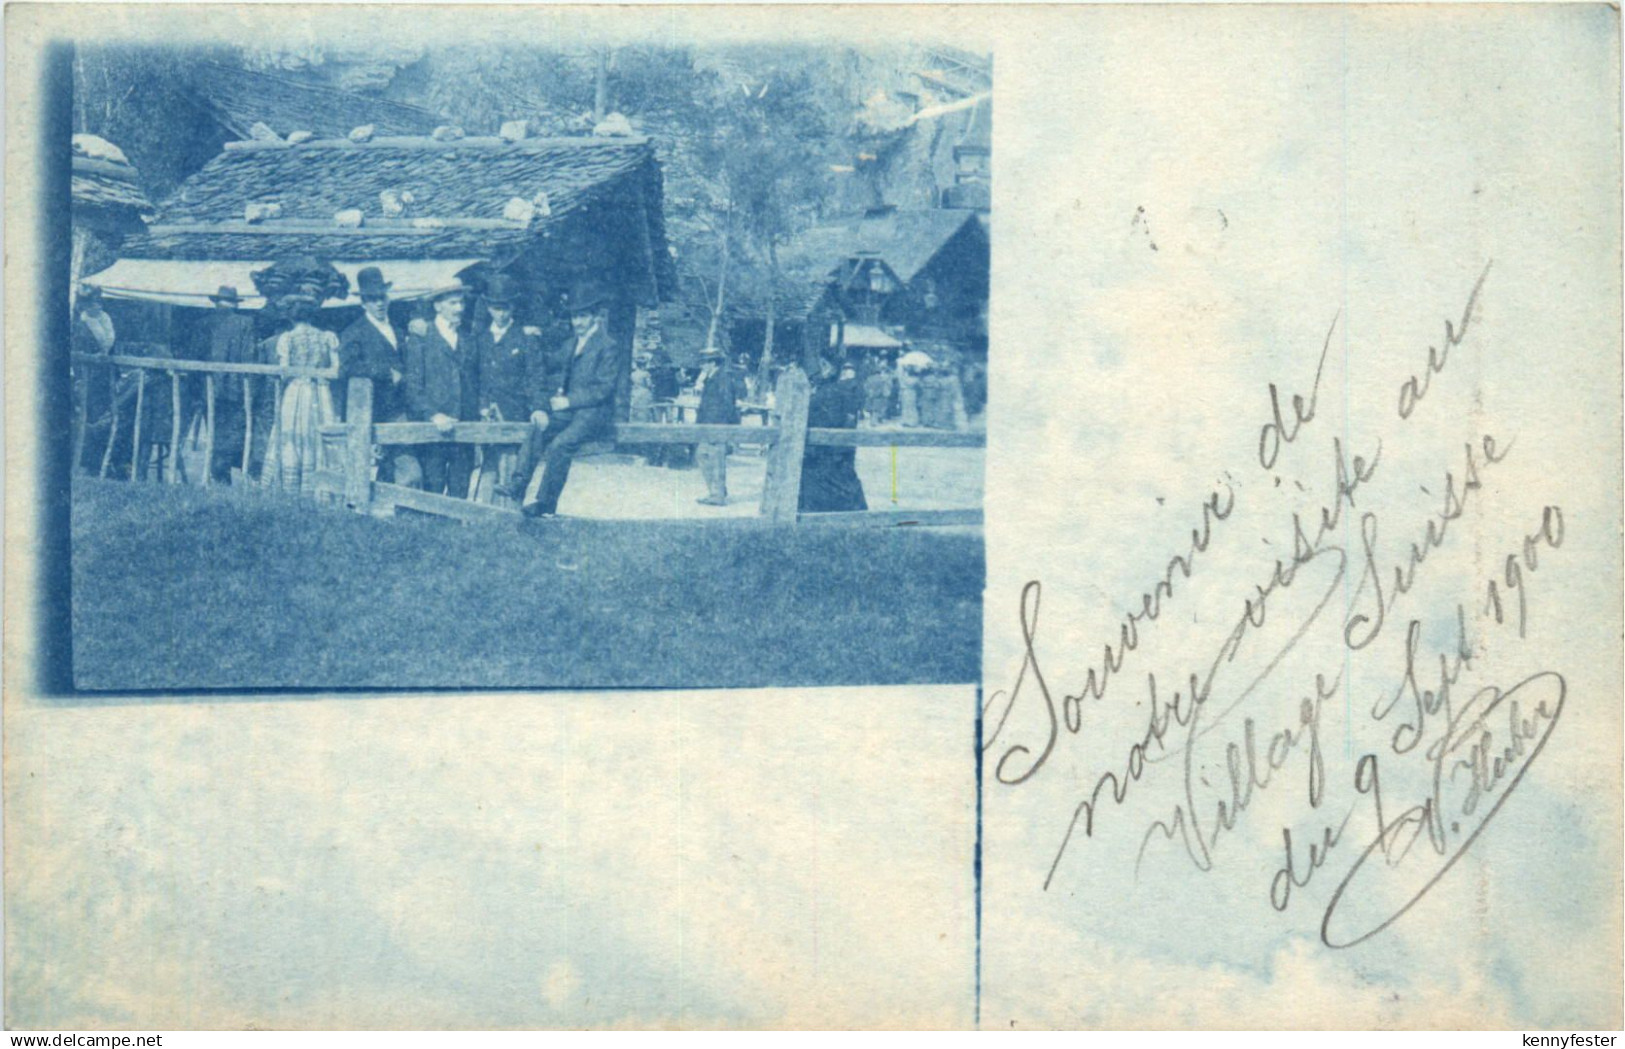 Souvenir de
notre visite au
Village Suisse
du 9 Sept 1900
V. Huber
www.delcampe.net
kennyfester